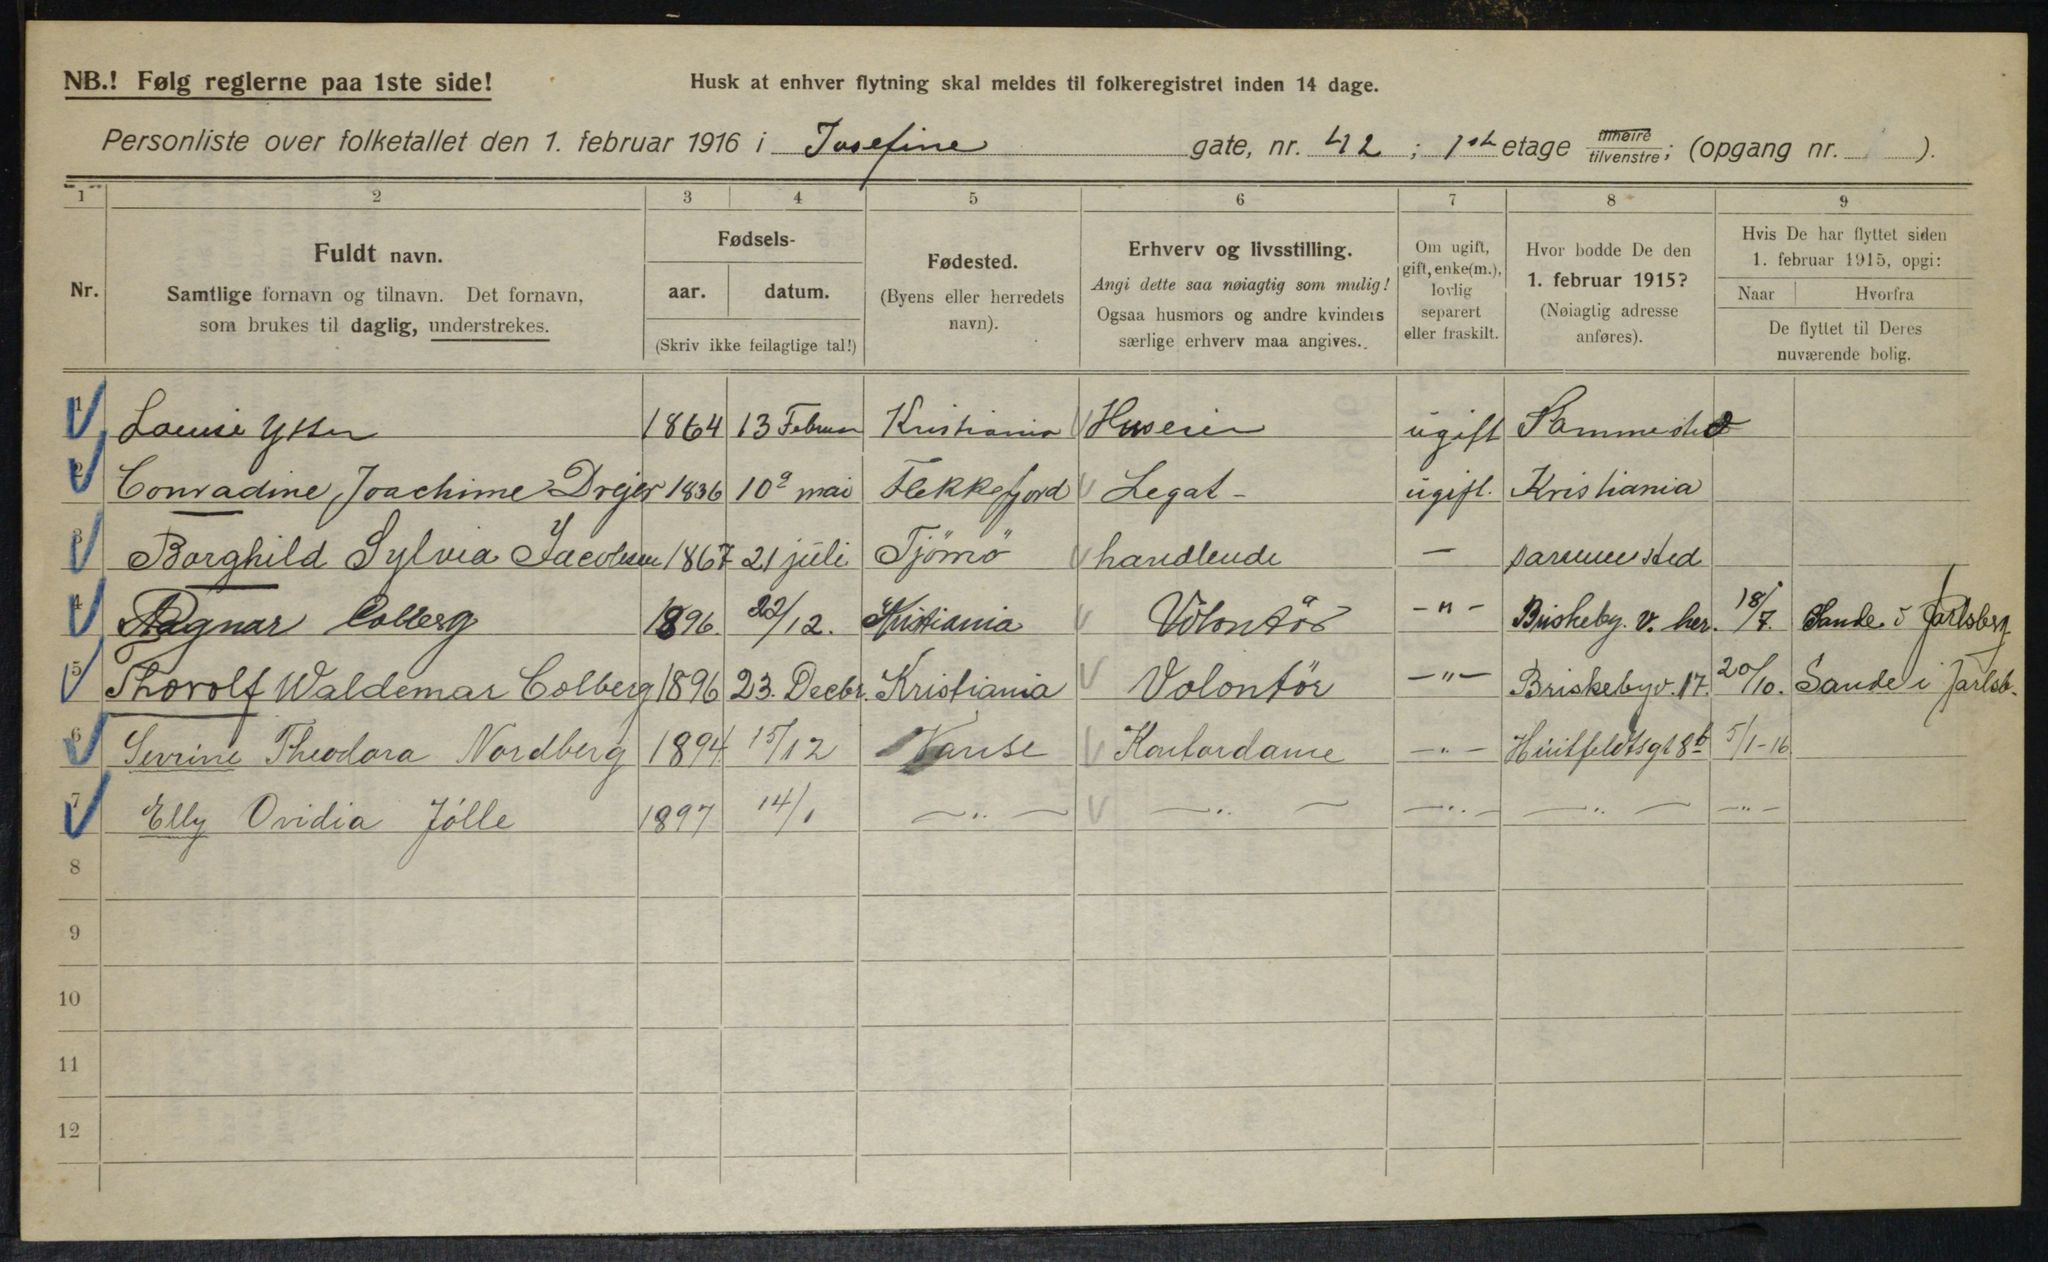 NB.! Følg reglerne paa 1ste side!
Husk at enhver flytning skal meldes til folkeregistret inden 14 dage.
Personliste over folketallet den 1. februar 1916 i Josefine gate, nr. 42 ; 1st etage tilhøire tilvenstre; (opgang nr. ).
1 2 3 4 5 6 7 8 9
Nr.
Fuldt navn.
Samtlige fornavn og tilnavn. Det fornavn,
som brukes til daglig, understrekes.
Fødsels-
aar. datum.
(Skriv ikke feilagtige tal!)
Fødested.
(Byens eller herredets
navn).
Erhverv og livsstilling.
Angi dette saa nøiagtig som mulig!
Ogsaa husmors og andre kvinders
særlige erhverv maa angives.
Om ugift,
gift, enke(m.),
lovlig
separert
eller fraskilt.
Hvor bodde De den
1. februar 1915?
(Nøiagtig adresse
anføres).
Hvis De har flyttet siden
1. februar 1915, opgi:
Naar Hvorfra
De flyttet til Deres
nuværende bolig.
1 Louise Ytter 1864 13 Februar Kristiania Huseier ugift Sammested
2 Conradine Joachime Drejer 1836 10de mai Flekkefjord Legat - ugift. Kristiania
3 Borghild Sylvia Jacobsen 1867 21 juli Tjömö handlende — sammested
4 Ragnar Colberg 1896. 22/12. Kristiania Volontör -"- Briskeby. v. her. 18/7. Sande i Jarlsberg
5 Thorolf Waldemar Colberg 1896 23. Decbr. Kristiania Volontör -"- Briskebyv. 17. 20/10. Sande i Jarlsb.
6 Sevrine Theodora Nordberg 1894 15/12 Vanse Kontordame -"- Huitfeldtsgt 8b 5/1-16
7 Elly Ovidia Jölle 1897 14/1 — " — — " — -"- — " — -"-
8
9
10
11
12